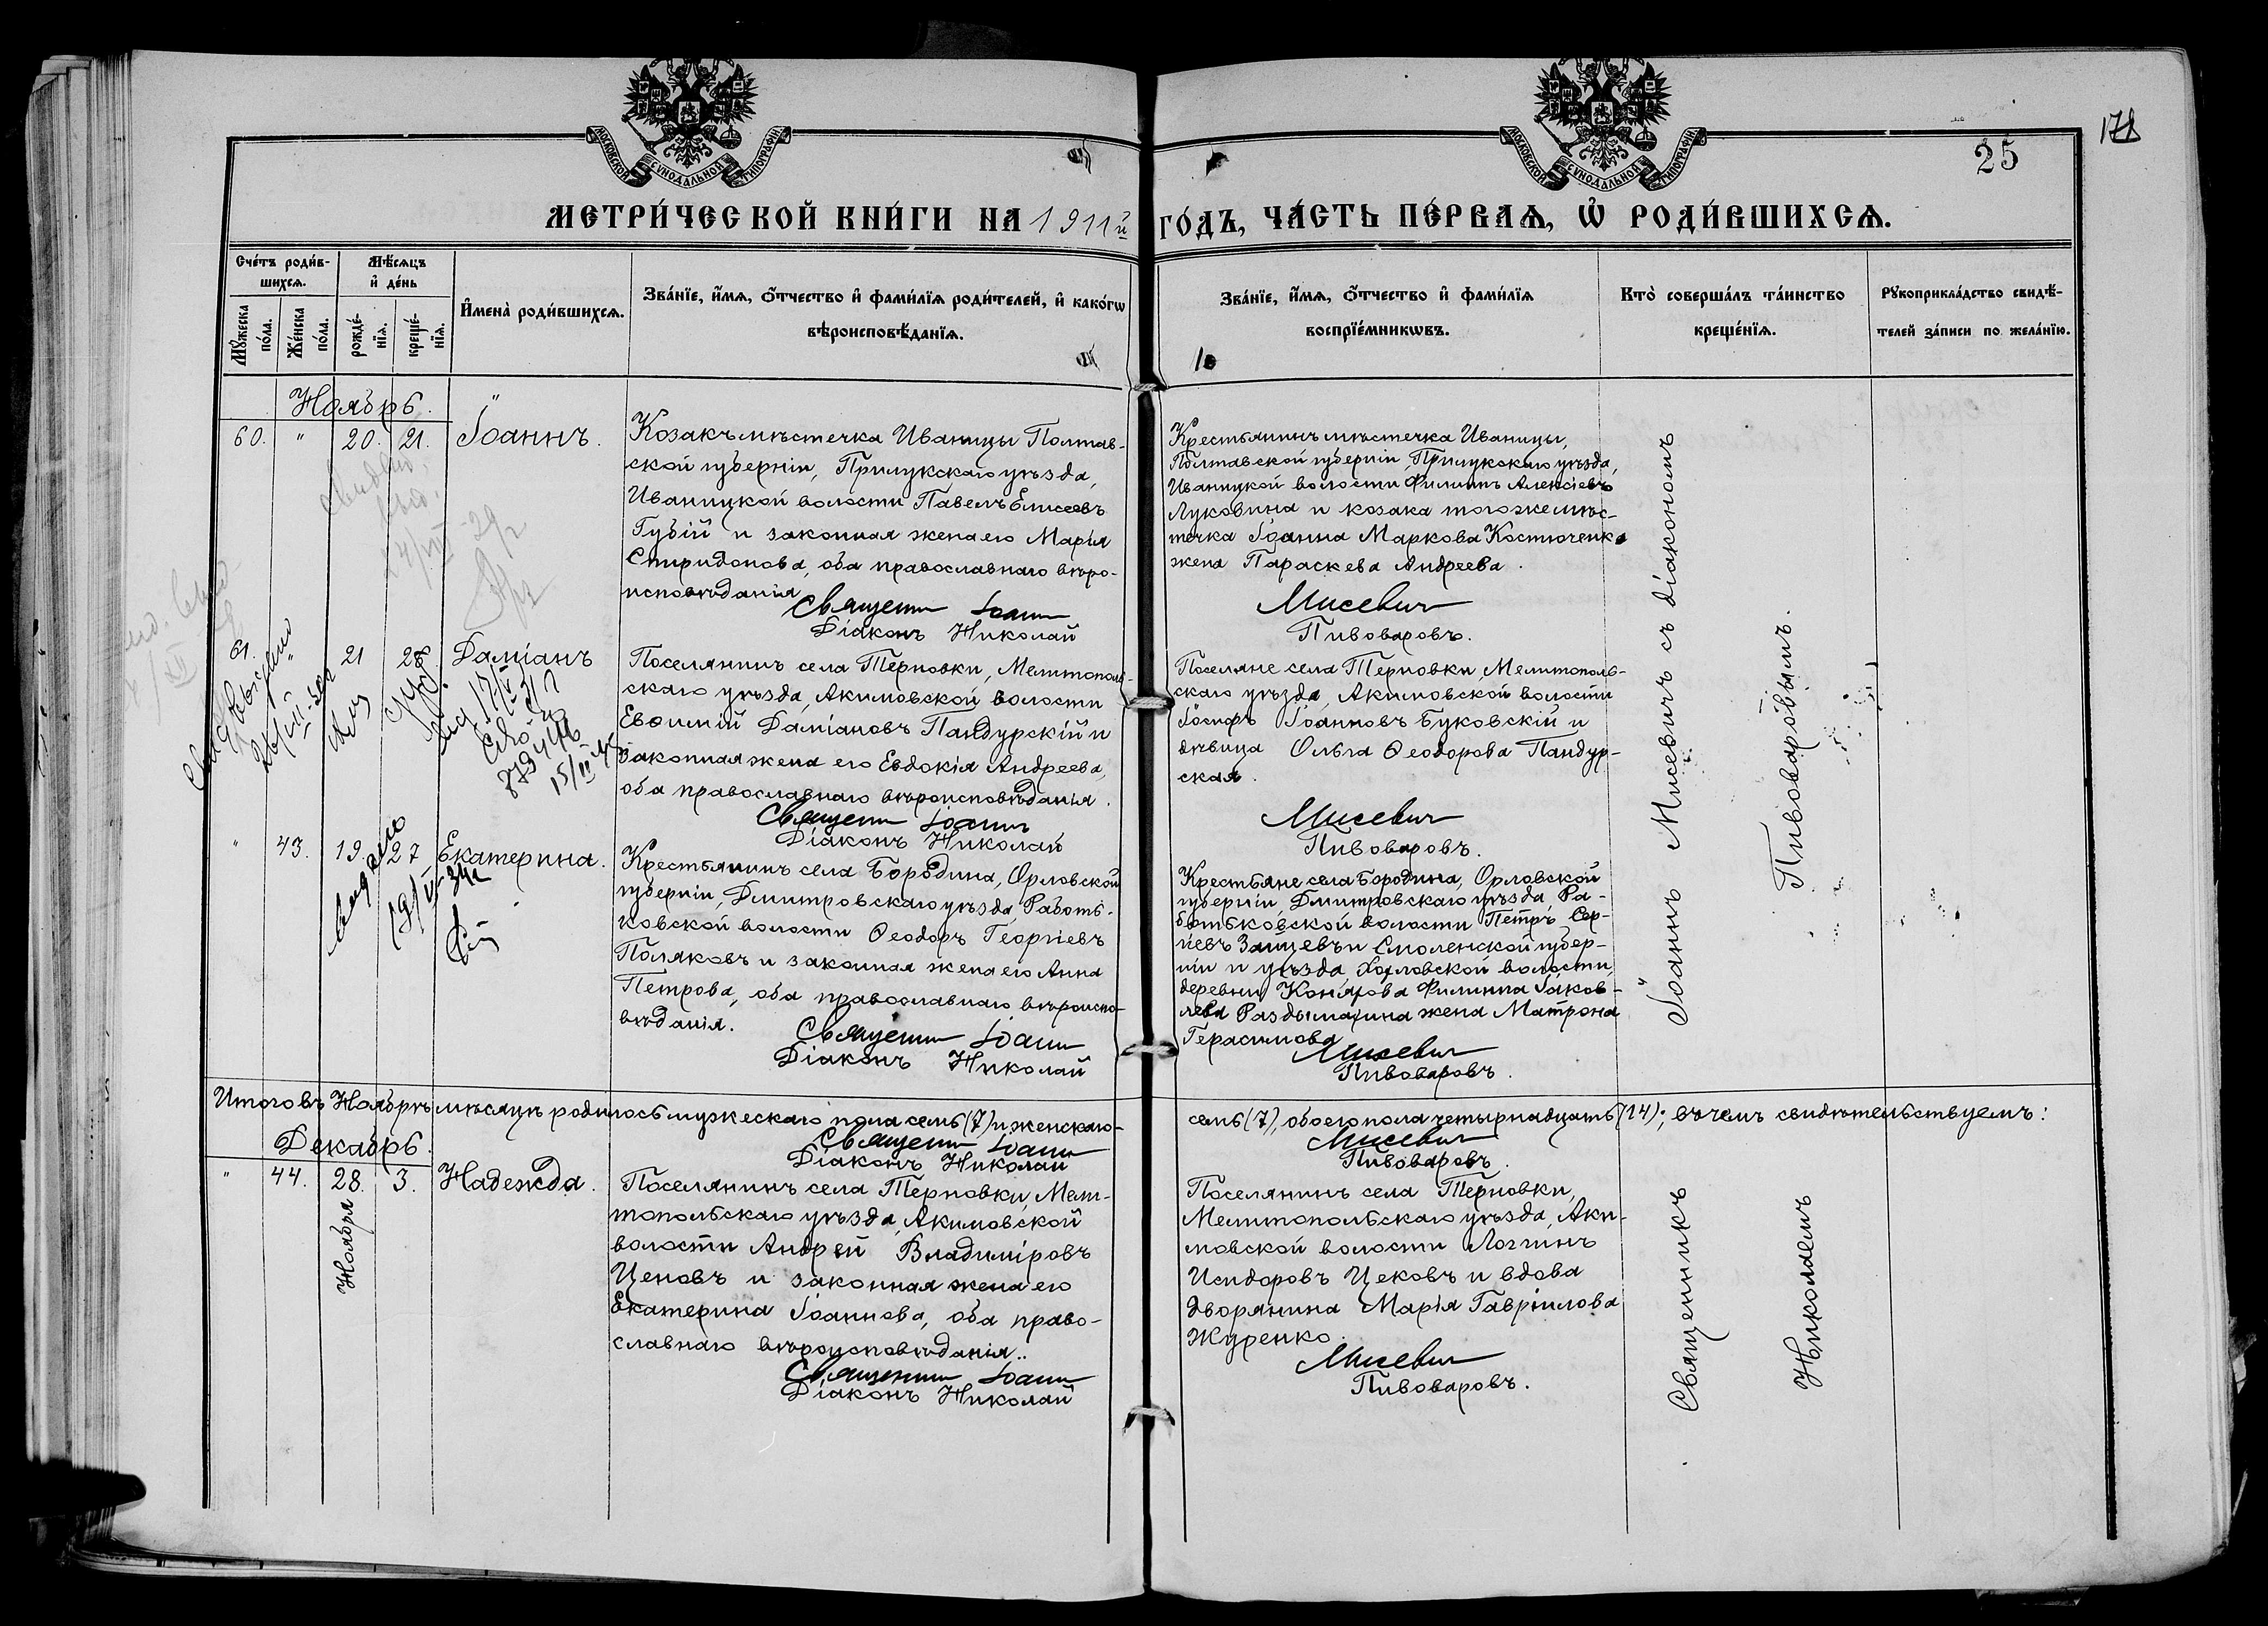 МОСКОВСКОЙ СѴНОДАЛЬНОЙ ТИПОГРАФІИ
МОСКОВСКОЙ СѴНОДАЛЬНОЙ ТИПОГРАФІИ
178
25
МЕТРИ́ЧЕСКОЙ КНИ́ГИ НА 1911й ГО́ДЪ, ЧА́СТЬ ПЕ́РВАѦ, Ѡ҆ РОДИ́ВШИХСѦ.
Сче́тъ роди́в-
шихсѧ.
Мѣ́сѧцъ
и҆ де́нь
Мꙋ́жеска
по́ла.
Же́нска
по́ла.
рожде́-
нїѧ.
креще́-
нїѧ.
И҆мена̀ роди́вшихсѧ.
Зва́нїе, и҆́мѧ, ѻ҆́тчество и҆ фами́лїѧ роди́телей, и҆ како́гѡ
вѣроисповѣ́данїѧ.
Зва́нїе, и҆́мѧ, ѻ҆́тчество и҆ фами́лїѧ
воспрїе́мникѡвъ.
Кто̀ соверша́лъ та́инство
креще́нїѧ.
Рꙋкоприкла́дство свидѣ́-
телей за́писи по жела́нїю.
Ноябрь.
60. " 20. 21. Іоаннъ.
Козакъ мѣстечка Иваницы Полтав-
ской губерніи, Прилукскаго уѣзда,
Иваницкой волости Павелъ Елисеевъ
Губій и законная жена его Марія
Спиридонова, оба православнаго вѣро-
исповѣданія
Священн Іоанн
Діаконъ Николай
Крестьянинъ мѣстечка Иваницы,
Полтавской губерніи, Прилукскаго уѣзда,
Иваницкой волости Филиппъ Алексіевъ
Луковина и козака того же мѣс-
течка Іоанна Маркова Костюченко
жена Параскева Андреева.
Мисевич
Пивоваровъ.
61. " 21 28 Даміанъ
Поселянинъ села Терновки, Мелитополь-
скаго уѣзда, Акимовской волости
Евѳимій Даміановъ Пандурскій и
законная жена его Евдокія Андреева,
оба православнаго вѣроисповѣданія.
Священн Іоанн
Діаконъ Николай
Поселяне села Терновки, Мелитополь-
скаго уѣзда, Акимовской волости
Іосифъ Іоанновъ Буковскій и
дѣвица Ольга Ѳеодорова Пандур-
ская.
Мисевич
Пивоваровъ.
" 43. 19. 27 Екатерина.
выдано
19/
Крестьянинъ села Бородина, Орловской
губерніи, Дмитровскаго уѣзда, Работь-
ковской волости Ѳеодоръ Георгіевъ
Поляковъ и законная жена его Анна
Петрова, оба православнаго вѣроиспо-
вѣданія.
Священн Іоанн
Діаконъ Николай
Крестьяне села Бородина, Орловской
губерніи, Дмитровскаго уѣзда, Ра-
ботьковской волости Петръ Сер-
гіевъ и Смоленской губер-
ніи и уѣзда, волости,
деревни Филиппа Іаков-
лева жена Матрона
Герасимова
Мисевич
Пивоваровъ.
Іоаннъ Мисевичъ съ діакономъ
Пивоваровымъ.
Итого въ Ноябрѣ мѣсяцѣ родилось мужескаго пола семь (7) и женскаго- семь (7), обоего пола четырнадцать (14); въ чемъ свидѣтельствуемъ:
Священн Іоанн
Діаконъ Николай
Мисевич
Пивоваровъ.
Декабрь.
" 44. 28. 3. Надежда.
Ноября
Поселянинъ села Терновки, Мели-
топольскаго уѣзда, Акимовской
волости Андрей Владиміровъ
Ценовъ и законная жена его
Екатерина Іоаннова, оба право-
славнаго вѣроисповѣданія.
Священн Іоанн
Діаконъ Николай
Поселянинъ села Терновки,
Мелитопольскаго уѣзда, Аки-
мовской волости Логгинъ
Исидоровъ Цековъ и вдова
дворянина Марія Гавріилова
Журенко.
Мисевич
Пивоваровъ.
Священникъ
Николаемъ